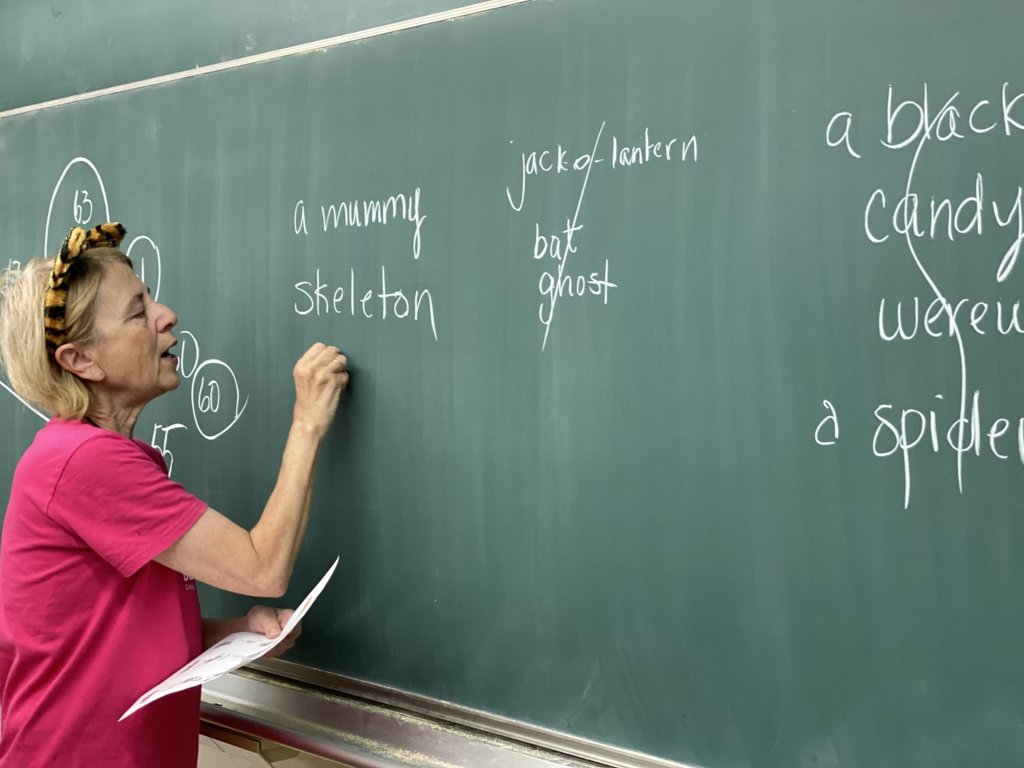 63
0
60
55
a mummy
skeleton
jack-o-lantern
bat
ghost
a black
candy
werew
a spider